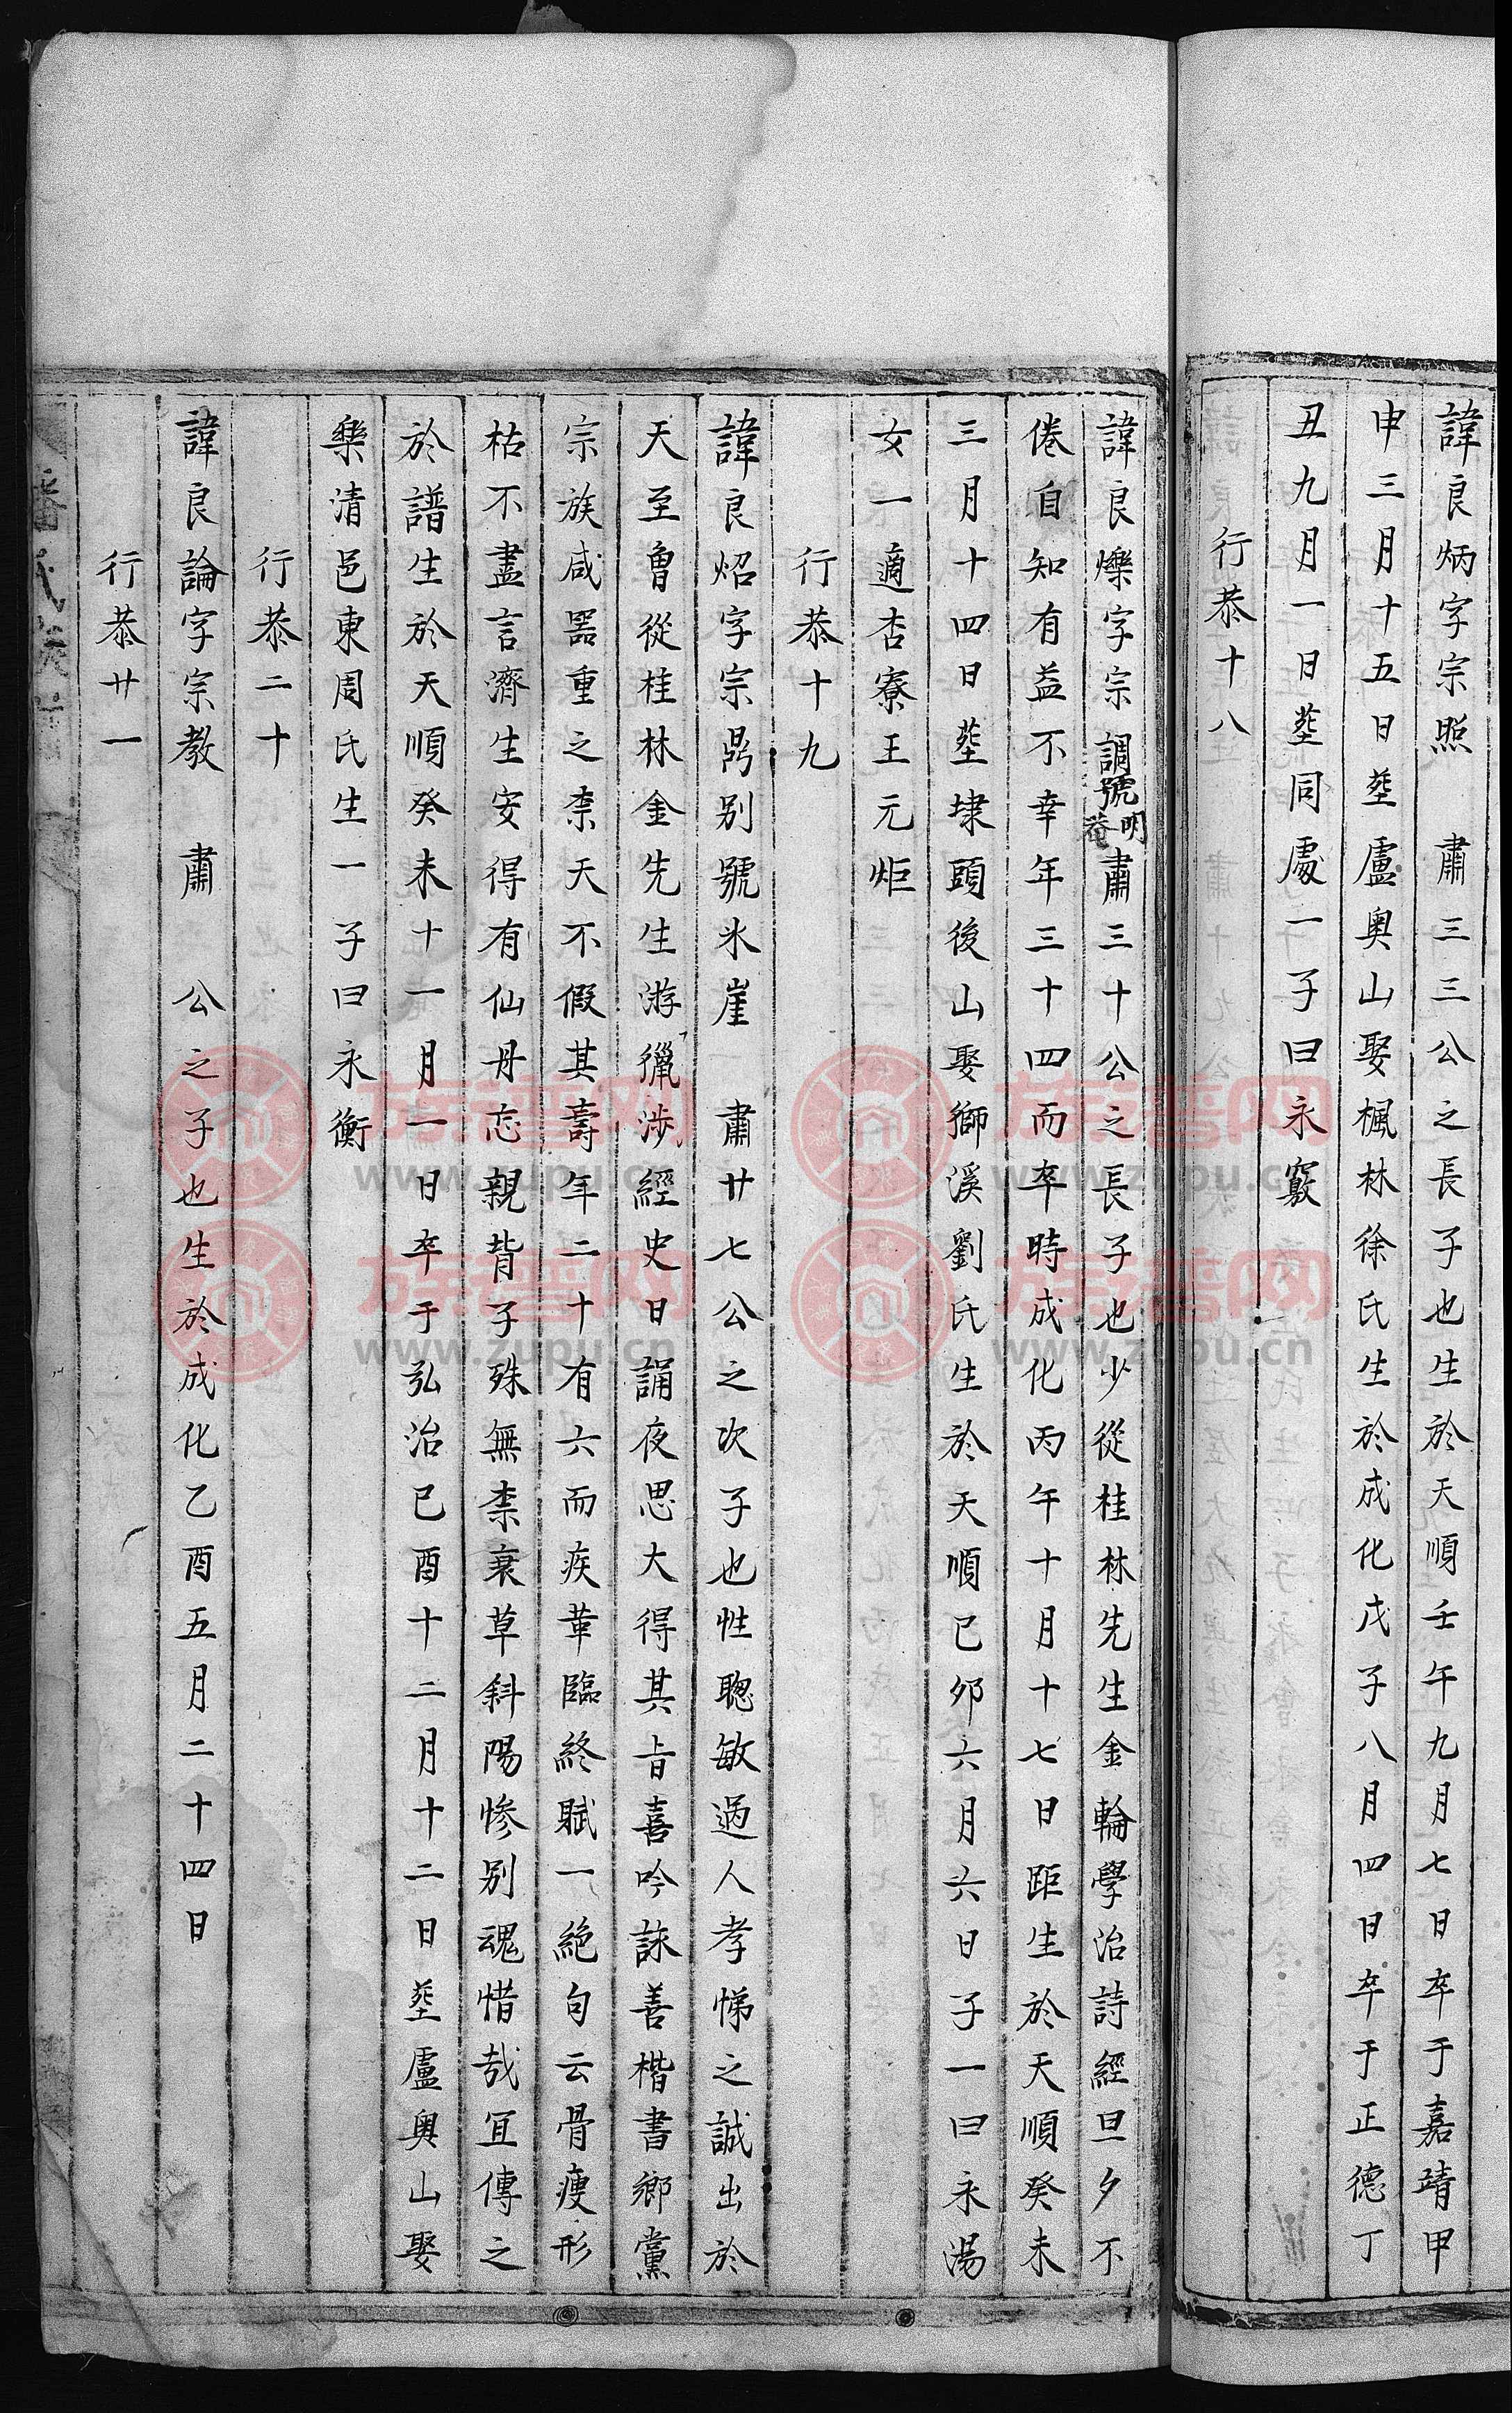 諱良炳字宗照　肅三三公之長子也生於天順壬午九月七日卒于嘉靖甲
申三月十五日塟盧奥山娶楓林徐氏生於成化戊子八月四日卒于正德丁
丑九月一日塟同處一子曰永竅
行恭十八
諱良爍字宗調號明菴肅三十公之長子也少從桂林先生金輪學治詩經旦夕不
倦自知有益不幸年三十四而卒時成化丙午十月十七日距生於天順癸未
三月十四日塟埭頭後山娶獅溪劉氏生於天順己卯六月六日子一曰永湯
女一適杏寮王元炬
行恭十九
諱良炤字宗昺别號氷崖　肅廿七公之次子也性聰敏過人孝悌之誠出於
天至魯從桂林金先生游獵涉經史日誦夜思大得其旨喜吟詠善楷書鄉黨
宗族咸噐重之柰天不假其壽年二十有六而疾革臨終賦一絶句云骨瘦形
枯不盡言濟生安得有仙丹忘親背子殊無柰衰草斜陽惨别魂惜哉宜傳之
於譜生於天順癸未十一月一日卒于弘治己酉十二月十二日塟盧奥山娶
樂清邑東周氏生一子曰永衡
行恭二十
諱良論字宗教　肅　公之子也生於成化乙酉五月二十四日
行恭廿一
族谱网
www.zupu.cn
族谱网
www.zupu.cn
族谱网
www.zupu.cn
族谱网
www.zupu.cn